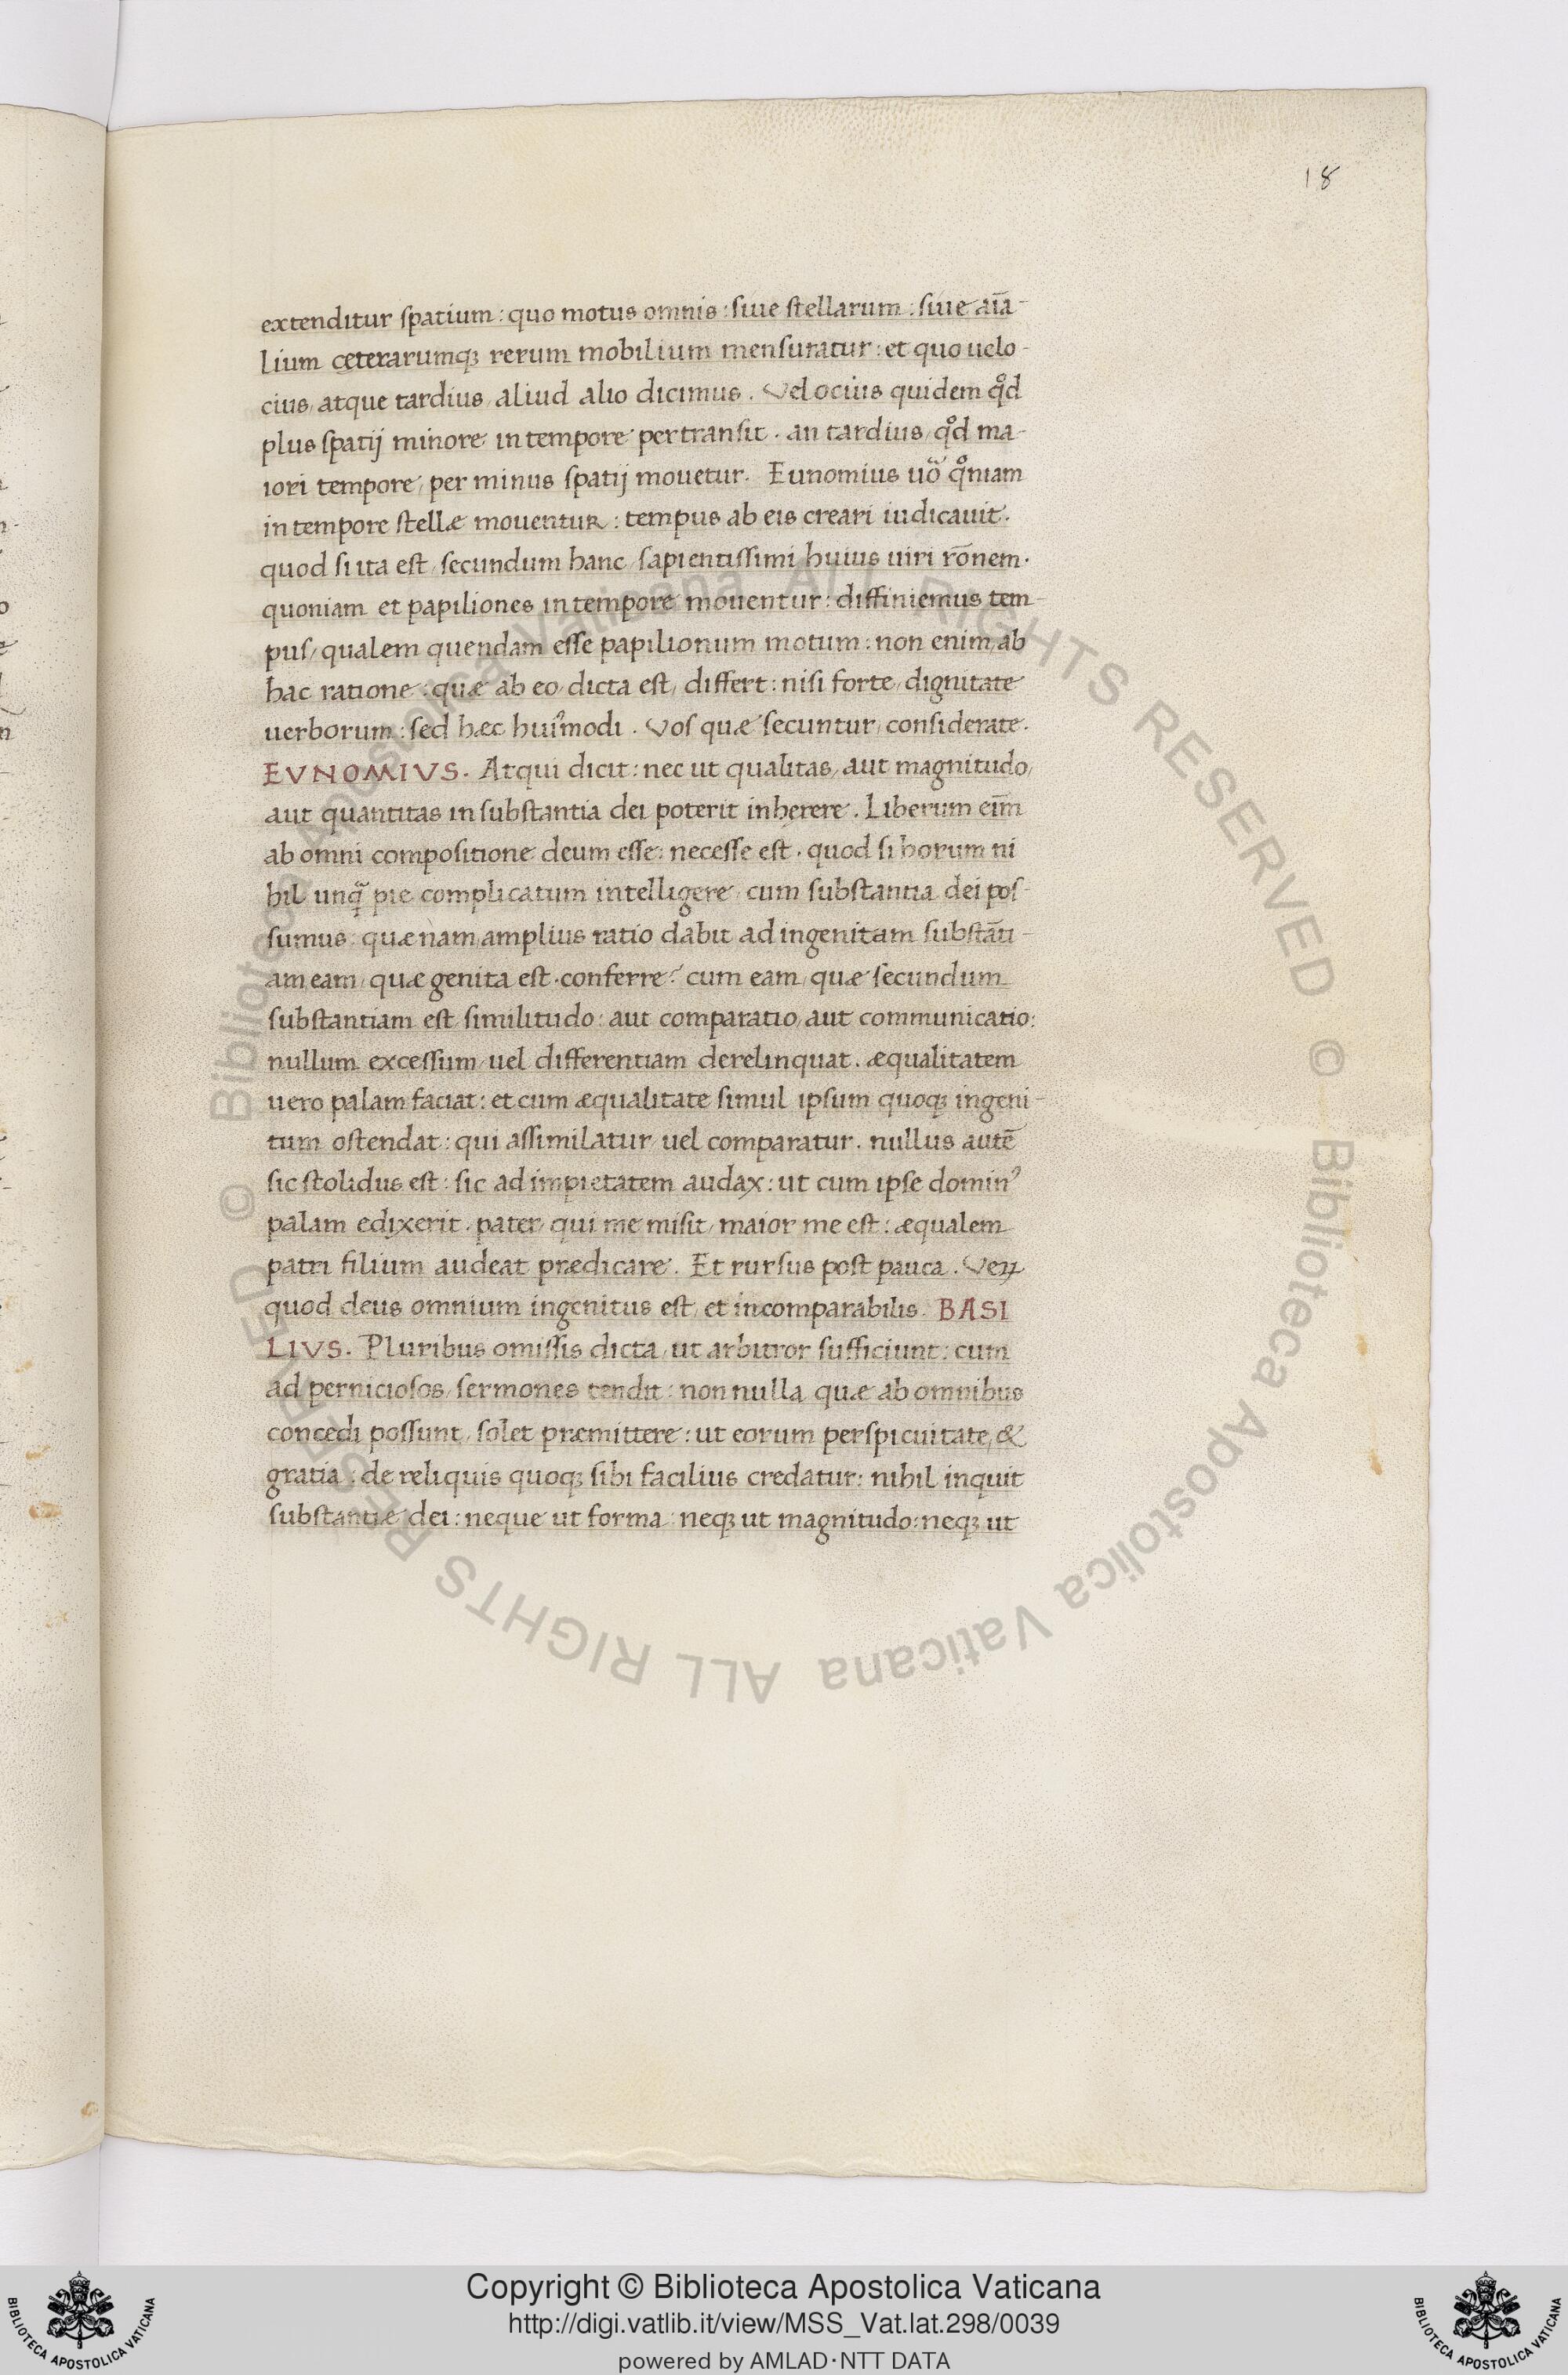 18
extenditur spatium: quo motus omnis: siue stellarum: siue aīa-
lium cęterarumqꝫ rerum mobilium mensuratur: et quo uelo-
cius, atque tardius, aliud alio dicimus. Velocius quidem qͦd
plus spatij minore in tempore pertransit. an tardius, qͦd ma-
iori tempore, per minus spatij mouetur. Eunomius uō qͦniam
in tempore stellæ mouentur: tempus ab eis creari iudicauit.
quod si ita est, secundum hanc, sapientissimi huius uiri rōnem.
quoniam et papiliones in tempore mouentur: diffiniemus tem-
pus, qualem quendam esse papilionum motum: non enim, ab
hac ratione: quæ ab eo, dicta est, differt: nisi forte, dignitate
uerborum: sed hæc huiꝰmodi. Vos quæ secuntur, considerate.
EVNOMIVS. Atqui dicit: nec ut qualitas, aut magnitudo,
aut quantitas in substantia dei poterit inhęrere. Liberum eīm
ab omni compositione deum esse: necesse est. quod si horum ni
hil unqᷓ pie complicatum intelligere, cum substantia dei pos-
sumus: quænam, amplius ratio dabit ad ingenitam substāti-
am, eam, quæ genita est. conferre? cum eam, quæ secundum
substantiam est, similitudo: aut comparatio, aut communicatio:
nullum excessum, uel differentiam derelinquat. æqualitatem
uero palam faciat: et cum æqualitate simul ipsum quoqꝫ ingeni-
tum ostendat: qui assimilatur, uel comparatur. nullus autē
sic stolidus est: sic ad impietatem audax: ut cum ipse dominꝰ
palam edixerit. pater, qui me misit, maior me est: æqualem
patri filium audeat prædicare. Et rursus post pauca. Veꝝ
quod deus omnium ingenitus est, et incomparabilis. BASI
LIVS. Pluribus omissis dicta, ut arbitror sufficiunt: cum
ad perniciosos, sermones tendit: non nulla quæ ab omnibus
concedi possunt, solet præmittere: ut eorum perspicuitate, &
gratia: de reliquis quoqꝫ sibi facilius credatur: nihil inquit
substantiæ dei: neque ut forma: neqꝫ ut magnitudo: neqꝫ ut
© Biblioteca Apostolica Vaticana ALL RIGHTS RESERVED © Biblioteca Apostolica Vaticana ALL RIGHTS RESERVED
BIBLIOTECA APOSTOLICA VATICANA
Copyright © Biblioteca Apostolica Vaticana
http://digi.vatlib.it/view/MSS_Vat.lat.298/0039
powered by AMLAD·NTT DATA
BIBLIOTECA APOSTOLICA VATICANA